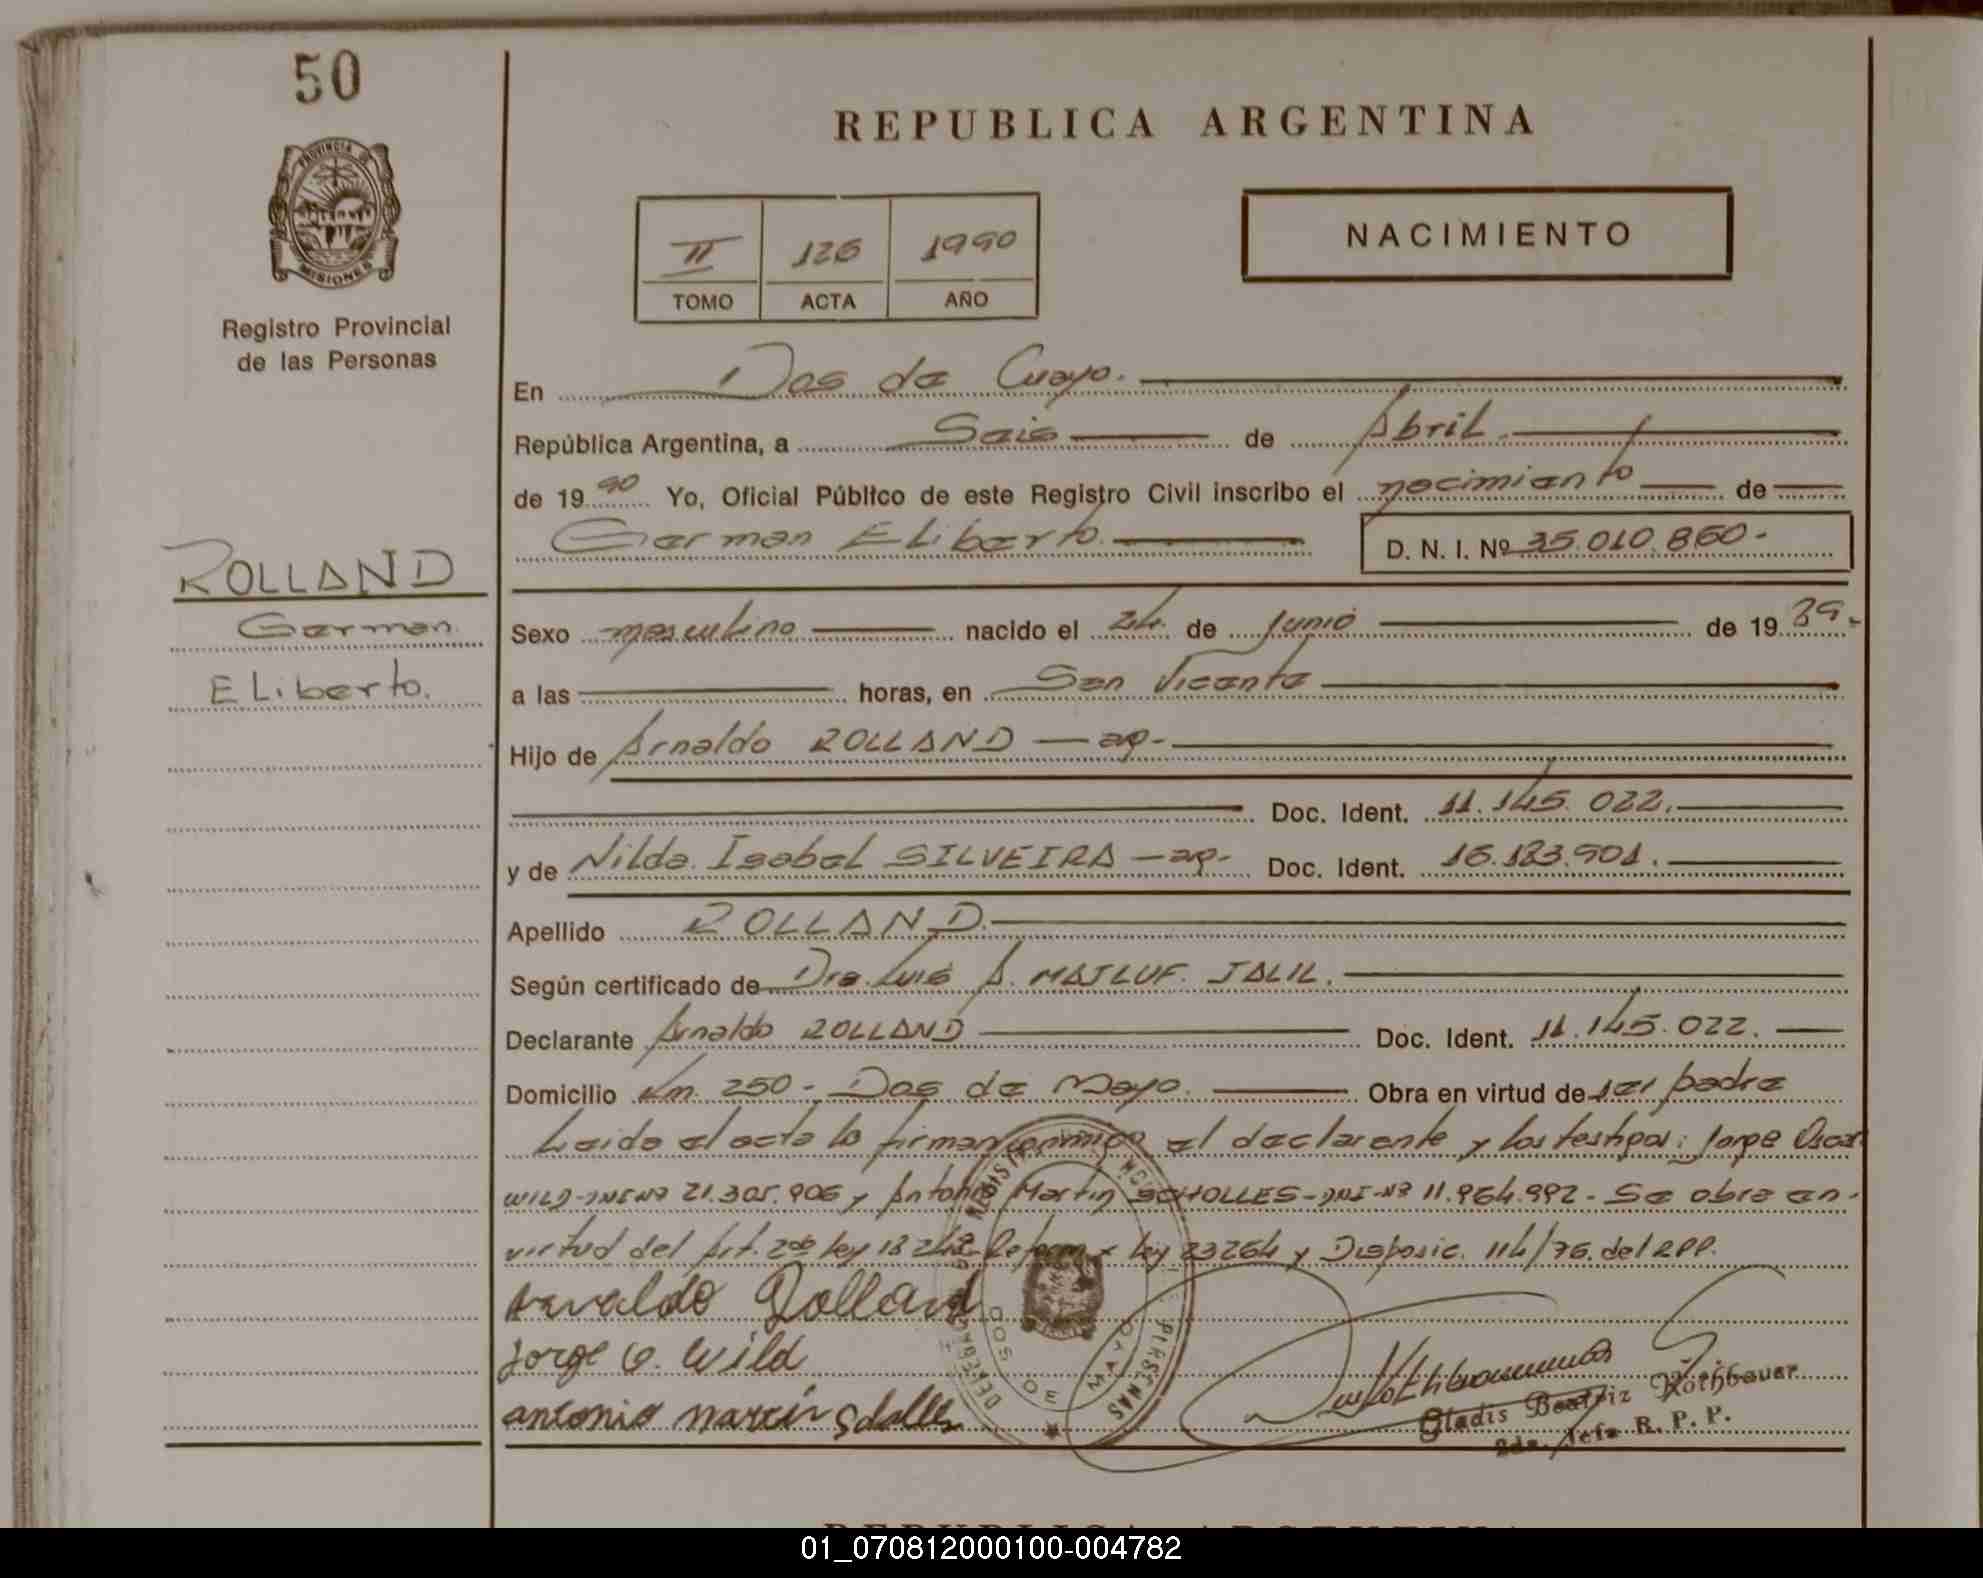 50
REPUBLICA ARGENTINA
PROVINCIA DE
MISIONES
Registro Provincial
de las Personas
II 126 1990
TOMO ACTA AÑO
NACIMIENTO
En Dos de Cuayo.
República Argentina, a Seis de Abril.
de 1990 Yo, Oficial Público de este Registro Civil inscribo el nacimiento de
German Eliberto. D. N. I. Nº 35.010.860-
ROLLAND
German
Eliberto.
Sexo masculino nacido el 24 de Junio de 1989.-
a las horas, en San Vicente
Hijo de Arnaldo ROLLAND - ap-
Doc. Ident. 11.145.022.
y de Nilda Isabel SILVEIRA - ap- Doc. Ident. 16.183.901.
Apellido ROLLAND.
Según certificado de Dra. Luis A. MAJLUF JALIL.
Declarante Arnaldo ROLLAND Doc. Ident. 11.145.022.
Domicilio Km. 250 - Dos de Mayo. Obra en virtud de ser padre
Leida el acta la firman conmigo el declarante y los testigos: Jorge Oscar
WILD-DNI Nº 21.305.906 y Antonio Martin SCHOLLES-DNI-Nº 11.964.992- Se obra en
virtud del Art. 2do ley 18248 Reform x ley 23264 y Disposic. 114/76. del RPP.
Arnaldo Rolland
Jorge O. Wild
antonio martin Scholles
DOS DE MAYO
PERSONAS
Gladis Beatriz Rothbauer
2da. Jefe R. P. P.
REPUBLICA ARGENTINA
01_070812000100-004782